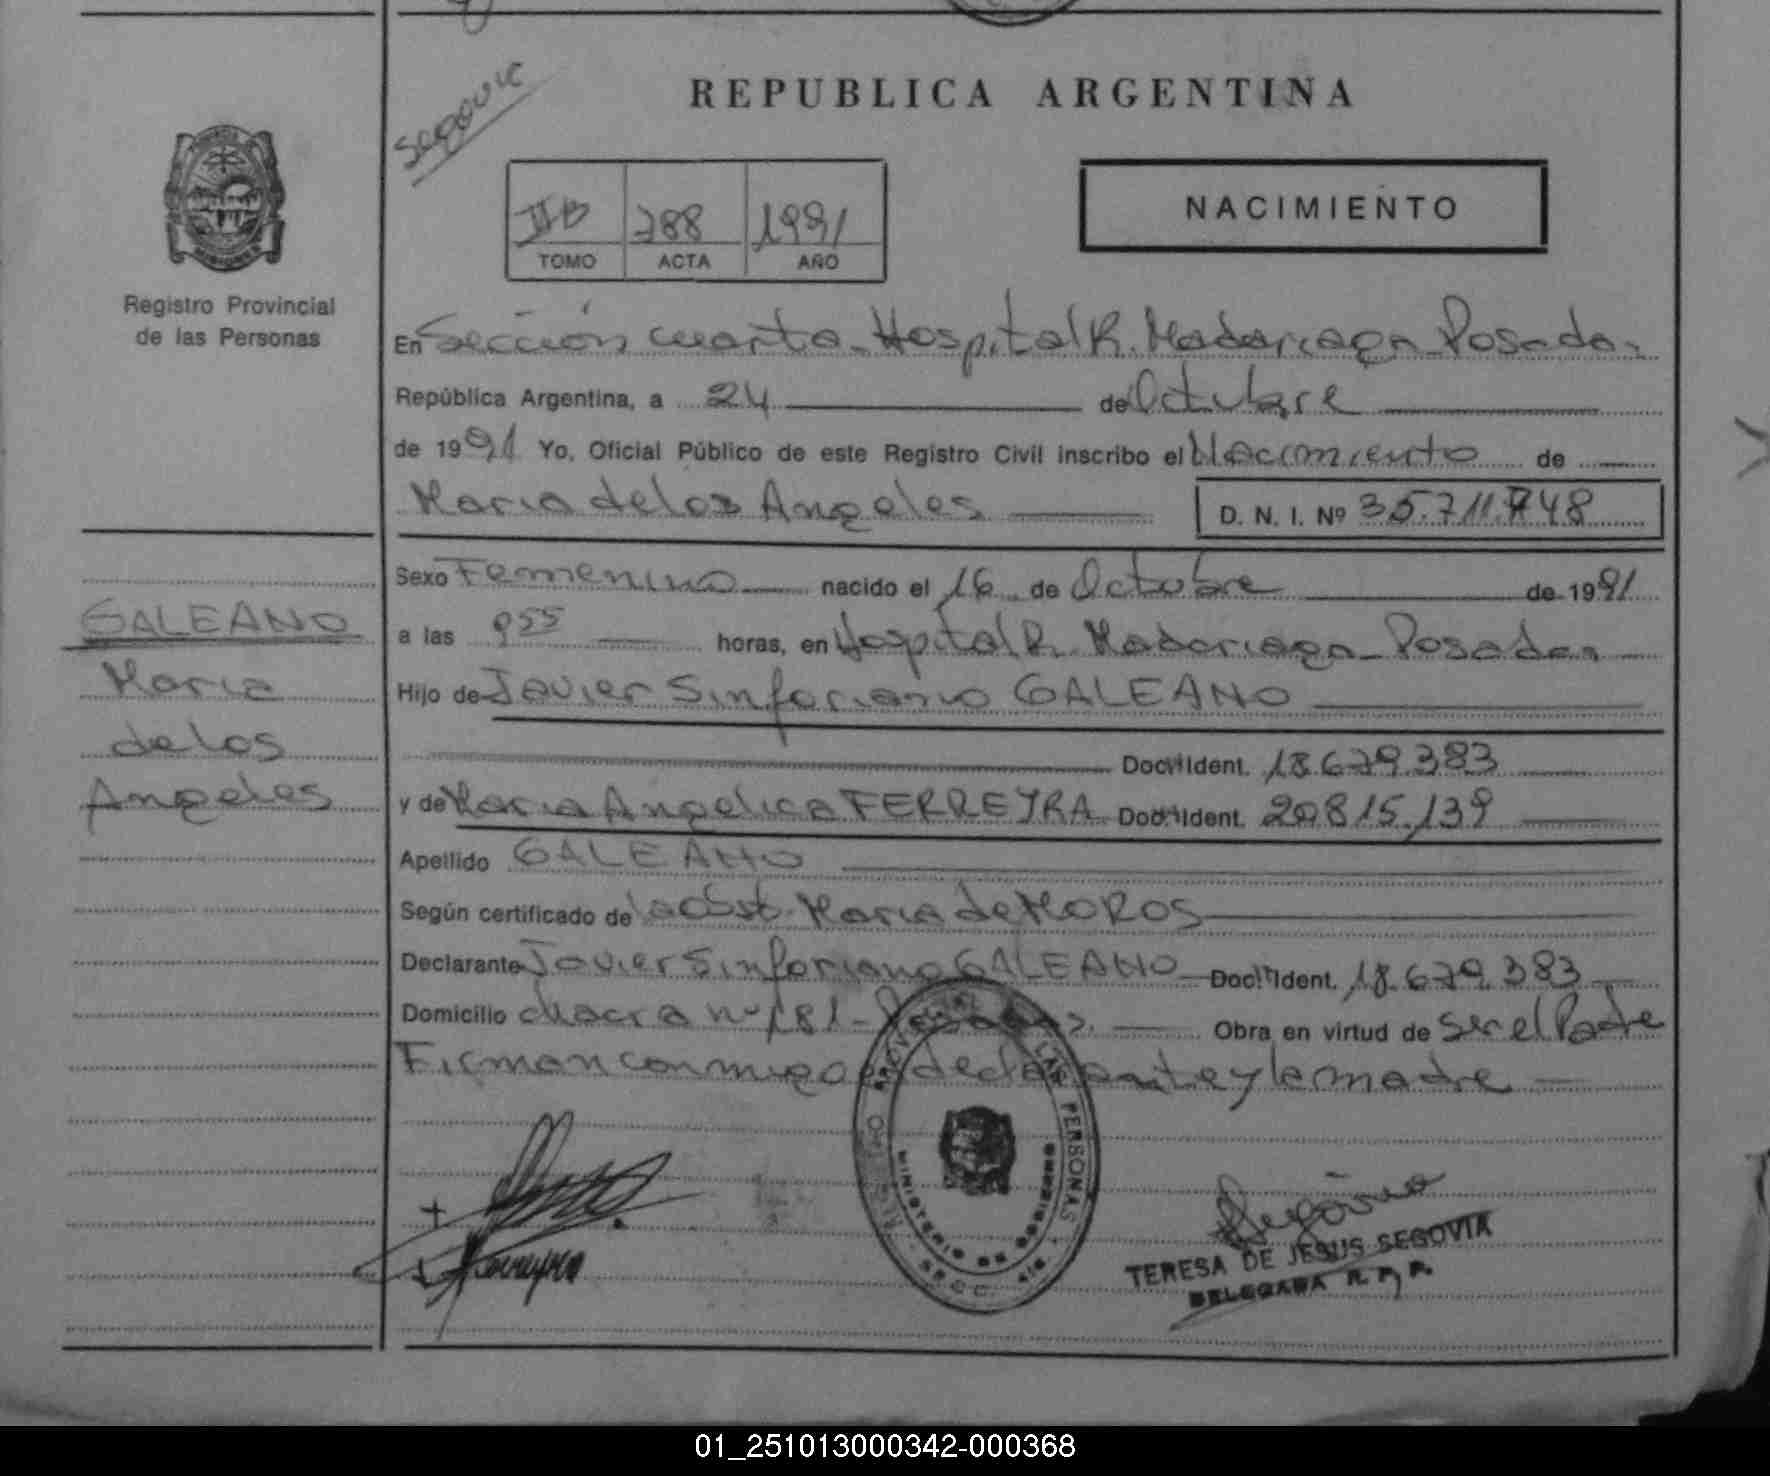 Segovia
REPUBLICA ARGENTINA
IIB 788 1991
TOMO ACTA AÑO
NACIMIENTO
MISIONES
Registro Provincial
de las Personas
En Sección cuarta - Hospital R. Madariaga - Posadas
República Argentina, a 24 de Octubre
de 1991 Yo, Oficial Público de este Registro Civil inscribo el Nacimiento de
Maria de los Angeles D. N. I. Nº 35.711.748
Sexo Femenino nacido el 16 de Octubre de 1991
a las 9 55 horas, en Hospital R. Madariaga - Posadas
Hijo de Javier Sinforiano GALEANO
Doc. Ident. 18.679.383
y de Maria Angelica FERREYRA Doc. Ident. 20.815.139
Apellido GALEANO
Según certificado de la Obst. Maria de MOROS
Declarante Javier Sinforiano GALEANO Doc. Ident. 18.679.383
Domicilio chacra nº 181 - Posadas. Obra en virtud de ser el Padre
Firman conmigo el declarante y la madre
GALEANO
Maria
de los
Angeles
REGISTRO PROVINCIAL DE LAS PERSONAS
MINISTERIO DE GOBIERNO
SECC. 4ta.
Segovia
TERESA DE JESUS SEGOVIA
DELEGADA R. P. P.
01_251013000342-000368